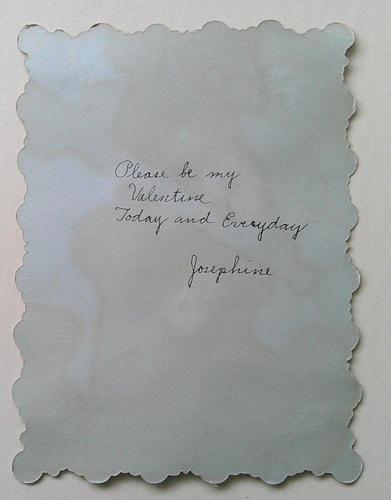 Please be my
Valentine
Today and Everyday
Josephine